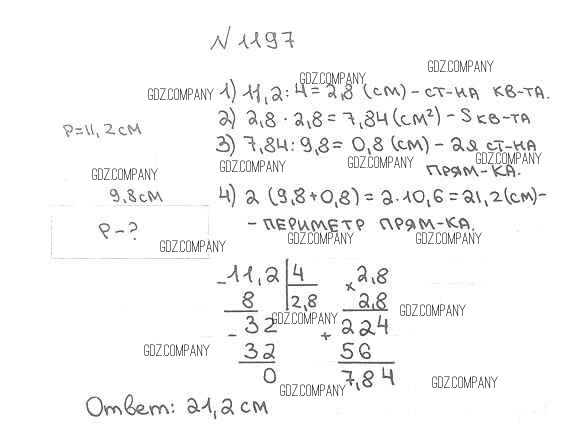 N 1197
GDZ.COMPANY
GDZ.COMPANY
GDZ.COMPANY
1) 11,2 : 4 = 2,8 (см) - ст-на кв-та.
2) 2,8 · 2,8 = 7,84 (см²) - S кв-та
P=11,2 см
3) 7,84 : 9,8 = 0,8 (см) - 2я ст-на
прям-ка.
GDZ.COMPANY
GDZ.COMPANY
GDZ.COMPANY
GDZ.COMPANY
9,8 см
4) 2 (9,8+0,8) = 2·10,6 = 21,2 (см)-
- периметр прям-ка.
P - ?
GDZ.COMPANY
GDZ.COMPANY
GDZ.COMPANY
- 11,2 | 4
8 2,8
- 32
32
0
× 2,8
2,8
+ 224
56
7,84
GDZ.COMPANY
GDZ.COMPANY
GDZ.COMPANY
GDZ.COMPANY
GDZ.COMPANY
Ответ: 21,2 см